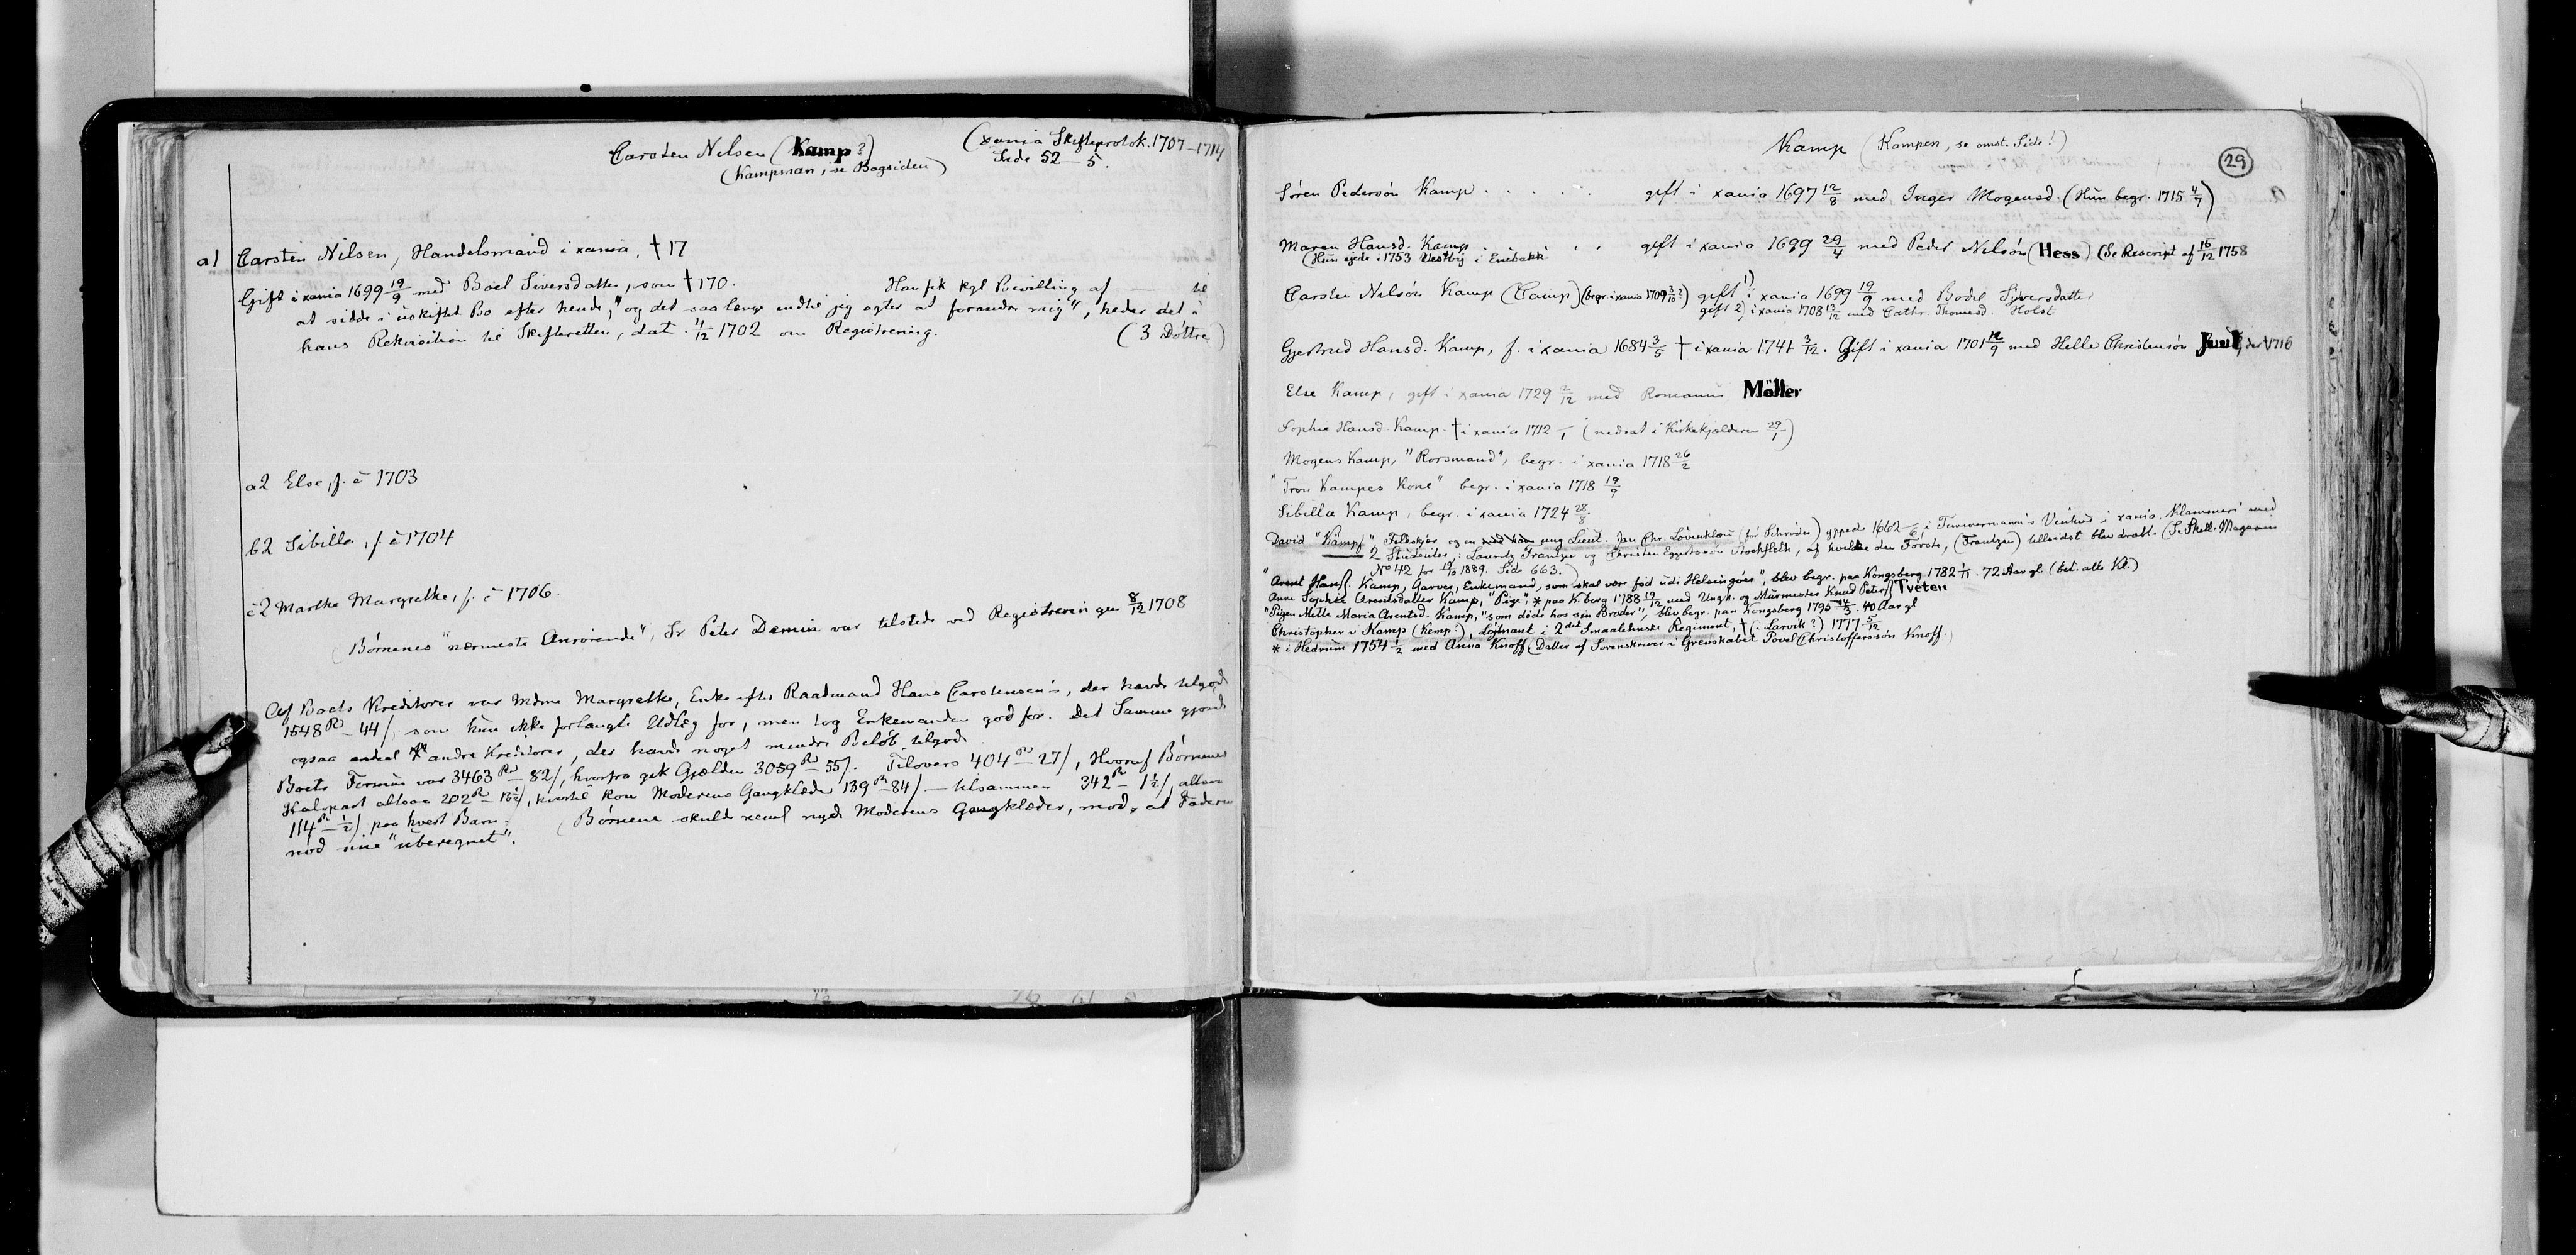 Carsten Nilsen (Kamp?)
(Kampman, se Bagsiden)
(xania Skifteprotok. 1707-1714
Side 52-5.
a1 Carsten Nilsen, Handelsmand i xania, † 17
Gift i xania 1699 19/9 med Boel Siversdatter, som † 170. Han fik kgl Bevilling af — til
at sidde i uskiftet Bo efter hende, "og det saa længe indtil jeg agter at forandre mig", heder det i
hans Rekvisition til Skifteretten, dat. 4/12 1702 om Registrering. (3 Døttre)
a2 Else, f. c 1703
b2 Sibilla, f. c 1704
c2 Marthe Margrethe, f. c 1706.
(Børnenes "nærmeste Anrørende", Sr Peter Demin var tilstede ved Registreringen 8/12 1708
Af Boets Kreditorer var Mdme Margrethe, Enke efter Raadmand Hans Carstensen's, der havde tilgode
1548 Rd - 44 /, som hun ikke forlangte Udlæg for, men tog Enkemanden god for. Det Samme gjorde
ogsaa endeel andre Kreditorer, der havde noget mindre Beløb tilgode.
Boets Formue var 3463 Rd - 82/, hvorfra gik Gjælden 3059 Rd - 55/. Tilovers 404 Rd - 27/, Hvoraf Børnenes
Halvpart altsaa 202 Rd - 13½/, hvortil kom Moderens Gangklæder 139 Rd - 84/ — tilsammen 342 Rd - 1½/, altsaa
114 Rd - ½/ paa hvert Barn. (Børnene skulde neml nyde Moderens Gangklæder, mod, at Faderen
nød sine "uberegnet".
Kamp (Kampen, se omst. Side!)
29
Søren Pedersøn Kamp . . . . . gift i xania 1697 12/8 med Inger Mogensd. (Hun begr. 1715 4/7)
Maren Hansd. Kamp . . . gift i xania 1699 29/4 med Peder Nilsøn (Hess) (Se Rescript af 16/12 1758
(Hun ejede i 1753 Vestby i Enebakk
Carsten Nilsøn Kamp (Camp) (begr. i xania 1709 3/10?) gift 1) i xania 1699 19/9 med Bodel Sjversdatter
gift 2) i xania 1708 13/12 med Cathr. Thomasd. Holst
Gjertrud Hansd. Kamp, f. i xania 1684 3/5 † i xania 1741 3/12. Gift i xania 1701 12/9 med Helle Christensøn Juul, der † 1716
Else Kamp, gift i xania 1729 2/12 med Romanus Möller
Sophie Hansd. Kamp. † i xania 1712 /1 (nedsat i Kirkekjælderen 29/1)
Mogens Kamp, "Rorsmand", begr. i xania 1718 26/2
"Tron Kampes Kone" begr. i xania 1718 19/9
Sibilla Kamp, begr. i xania 1724 28/8.
David "Kämpf" Feltskjær og en ung Lieut. Jan Chr. Løvenklou (før Schrøder) yppede 1662 /6 i Timmermann's Vinhus i xania Klammeri med
2 Studenter, Lauritz Frantzen og Christen Eggertssøn Stockfleth, af hvilke den Første, (Frantzen) tilsidst blev dræbt. (Se Skill.-Magazin
No 42 for 19/10 1889. Side 663.)
"Arent Hanss. Kamp, Garver, Enkemand, som skal være fød udi Helsingøer", blev begr. paa Kongsberg 1782 1/11. 72 Aar gl (bet. alle Kl.)
Anne Sophie Arentsdatter Kamp, "Pige", * paa K.berg 1788 19/12 med Ungk. og Murmester Knud Peterss Tveten
"Pigen Mette Maria Arentsd. Kamp, "som døde hos sin Broder", blev begr. paa Kongsberg 1795 /3. 40 Aar gl
Christopher v Kamp (Kemp?), Løjtnant i 2det Smaalehnske Regiment, † (i Larvik?) 1777 5/12
* i Hedrum 1754 1/2 med Anna Knoff (Datter af Sorenskriver i Grevskabet Povel Christofferssøn Knoff.)